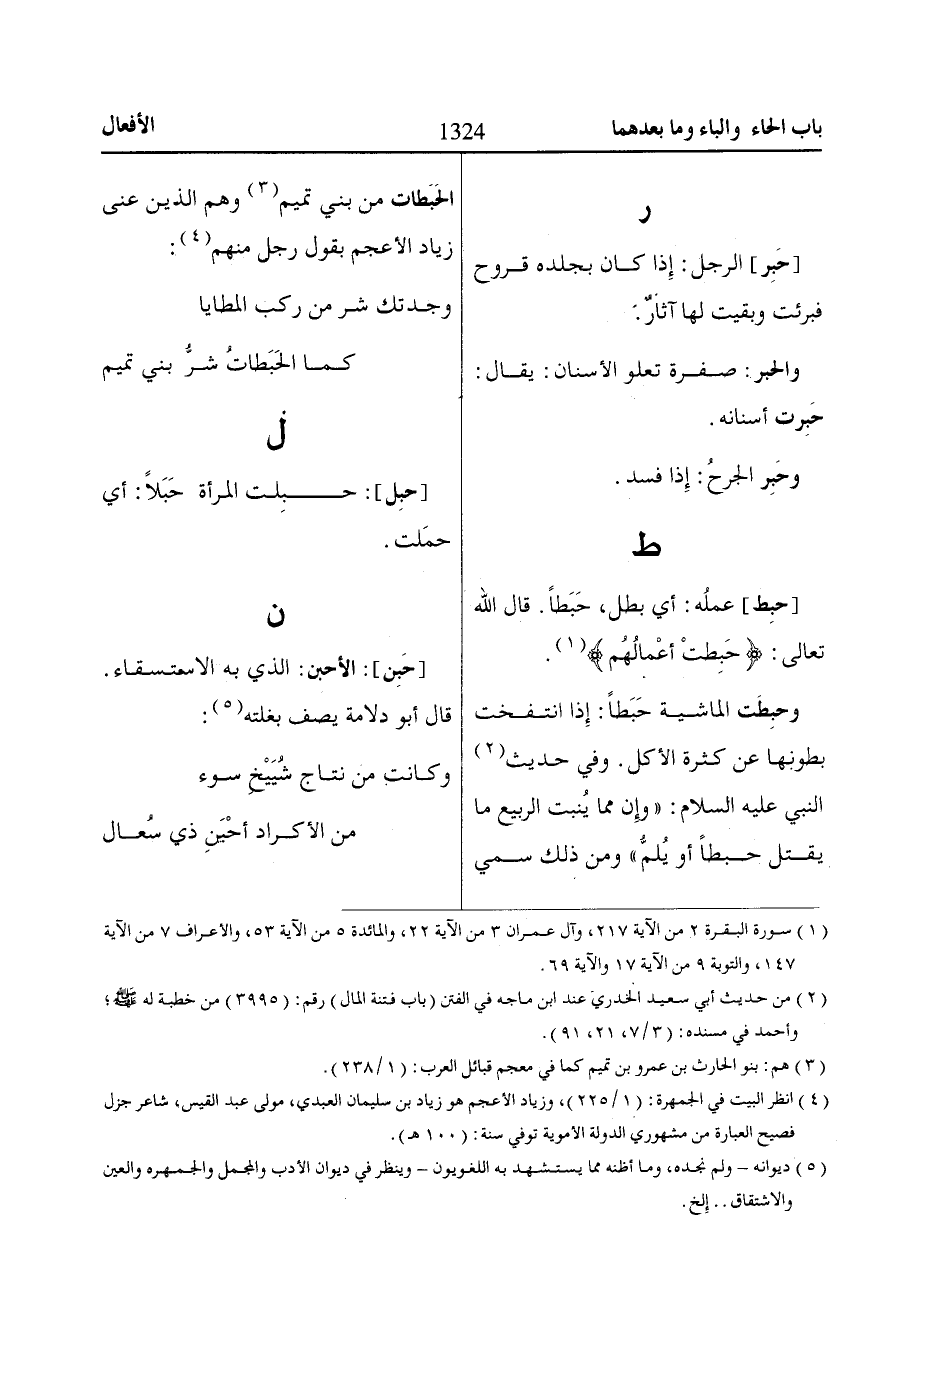 باب الحاء والباء وما بعدهما
1324
الأفعال
ر
[حَبِر] الرجل: إذا كان بجلده قروح
فبرئت وبقيت لها آثارٌ.
والحبر: صفرة تعلو الأسنان: يقال:
حَبِرت أسنانه.
وحَبِر الجرحُ: إذا فسد.
ط
[حبِط] عملُه: أي بطل، حَبَطاً. قال الله
تعالى: ﴿حَبِطتْ أعْمالُهُم﴾(١).
وحبِطَت الماشية حَبَطاً: إذا انتفخت
بطونها عن كثرة الأكل. وفي حديث(٢)
النبي عليه السلام: «وإن مما يُنبت الربيع ما
يقتل حبطاً أو يُلمُّ» ومن ذلك سمي
الحَبَطات من بني تميم(٣) وهم الذين عنى
زياد الأعجم بقول رجل منهم(٤):
وجدتك شر من ركب المطايا
كما الحَبَطاتُ شرُّ بني تميم
ل
[حبِل]: حبِلت المرأة حَبَلاً: أي
حمَلت.
ن
[حَبِن]: الأحبن: الذي به الاستسقاء.
قال أبو دلامة يصف بغلته(٥):
وكانت من نتاج شُيَيْخِ سوء
من الأكراد أحْبَنِ ذي سُعال
(١) سورة البقرة ٢ من الآية ٢١٧، وآل عمران ٣ من الآية ٢٢، والمائدة ٥ من الآية ٥٣، والأعراف ٧ من الآية
١٤٧، والتوبة ٩ من الآية ١٧ والآية ٦٩.
(٢) من حديث أبي سعيد الخدري عند ابن ماجه في الفتن (باب فتنة المال) رقم: (٣٩٩٥) من خطبة له ﷺ؛
وأحمد في مسنده: (٧/٣، ٢١، ٩١).
(٣) هم: بنو الحارث بن عمرو بن تميم كما في معجم قبائل العرب: (٢٣٨/١).
(٤) انظر البيت في الجمهرة: (٢٢٥/١)، وزياد الأعجم هو زياد بن سليمان العبدي، مولى عبد القيس، شاعر جزل
فصيح العبارة من مشهوري الدولة الأموية توفي سنة: (١٠٠ هـ).
(٥) ديوانه – ولم نجده، وما أظنه مما يستشهد به اللغويون – وينظر في ديوان الأدب والمجمل والجمهره والعين
والاشتقاق.. إلخ.